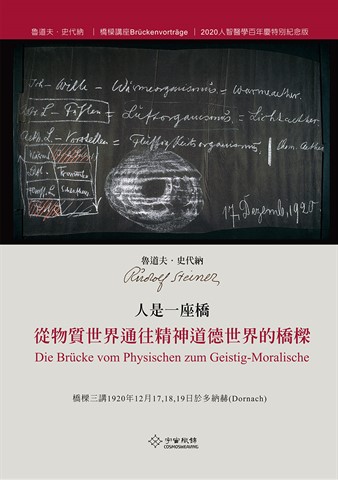 魯道夫．史代納 | 橋樑講座Brückenvorträge | 2020人智醫學百年慶特別紀念版
Ich - Wille - Wärmeorganismus = Wärmeaether.
L - Fühlen = Luftorganismus = Lichtaether
L - Vorstellen = Flüssigkeitsorganismus | Chem. Aether
17. Dezemb. 1920
魯道夫．史代納
Rudolf Steiner
人是一座橋
從物質世界通往精神道德世界的橋樑
Die Brücke vom Physischen zum Geistig-Moralische
橋樑三講1920年12月17,18,19日於多納赫(Dornach)
宇宙織錦
COSMOSWEAVING